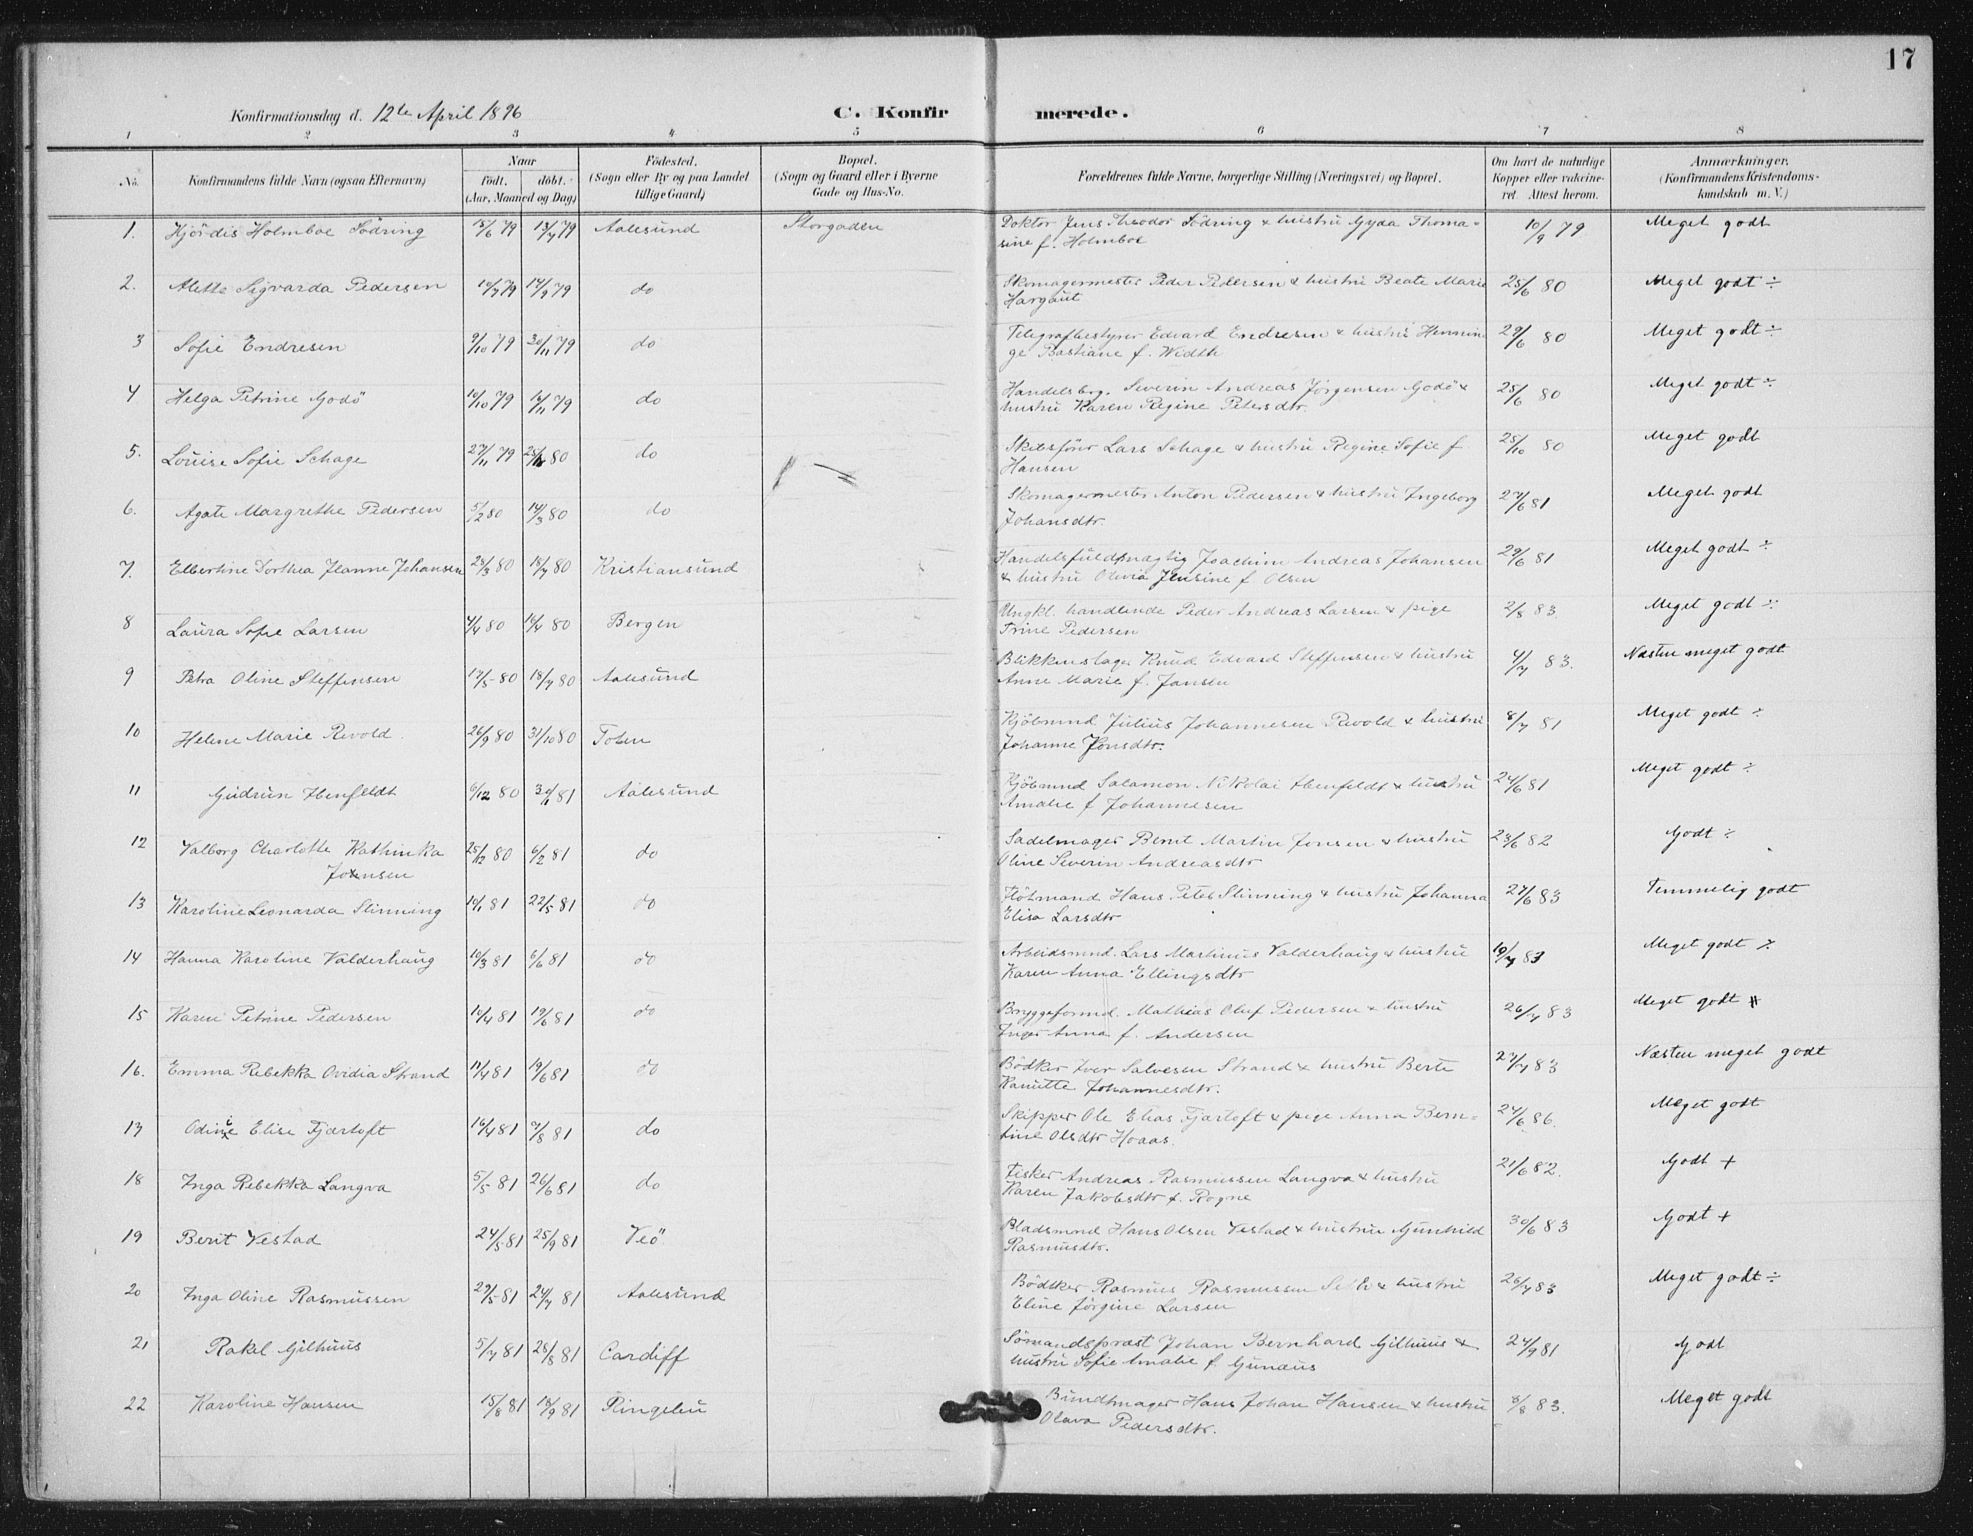 17
Konfirmationsdag d. 12te April 1896 C. Konfirmerede.
1 2 3 4 5 6 7 8
No. Konfirmandens fulde Navn (ogsaa Efternavn) Naar født. døbt. (Aar, Maaned og Dag) Fødested. (Sogn eller By og paa Landet tillige Gaard) Bopæl. (Sogn og Gaard eller i Byerne Gade og Hus-No. Forældrenes fulde Navne, borgerlige Stilling (Næringsvei) og Bopæl. Om havt de naturlige Kopper eller vaccineret. Attest herom. Anmærkninger. (Konfirmandens Kristendomskundskab m. V.)
1. Hjördis Holmboe Södring 15/6 79 13/7 79 Aalesund Storgaden Doktor Jens Theodor Södring & hustru Gyda Thoma- 10/9 79 Meget godt
sine f. Holmboe
2. Alette Sigvarda Pedersen 10/7 79 14/9 79 do Skomagermester Peder Pedersen & hustru Beate Marie 25/6 80 Meget godt ÷
Hargaut
3 Sofie Endresen 9/10 79 30/11 79 do Telegrafbestyrer Edvard Endresen & hustru Hennin 29/6 80 Meget godt ÷
ge Bastiane f. Width
4 Helga Petrine Godö 10/10 79 do Handelsbrg. Severin Andreas Jørgensen Godö & 25/6 80 Meget godt ÷
hustru Karen Regine Petersdtr.
5. Louise Sofie Schage 27/11 79 80 do Skibsförer Lars Schage & hustru Regine Sofie f. 25/10 80 Meget godt
Hansen
6. Agate Margrethe Pedersen 5/2 80 14/3 80 do Skomagermester Anton Pedersen & hustru Ingeborg 27/6 81 Meget godt
Johansdtr.
7. Elbertine Dorthea Jeanne Johansen 23/3 80 18/7 80 Kristiansund Handelsfuldmægtig Joachim Andreas Johansen 29/6 81 Meget godt ÷
& hustru Olivia Jensine f. Olsen
8 Laura Sofie Larsen 4/4 80 14/4 80 Bergen Ungkl. handlende Peder Andreas Larsen & pige 2/8 83. Meget godt ÷
Trine Pedersen
9 Petra Oline Steffensen 17/5 80 18/7 80 Aalesund Blikkenslager Knud Edvard Steffensen & hustru 4/7 83. Næsten meget godt
Anne Marie f. Jansen
10 Helene Marie Revold 26/9 80 31/10 80 Toten Kjöbmnd Julius Johannesen Revold & hustru 8/7 81 Meget godt ÷
Johanne Jonsdtr.
11 Gudrun Ibenfeldt 6/12 80 30/1 81 Aalesund Kjöbmnd Salamon Nikolai Ibenfeldt & hustru 24/6 81 Meget godt ÷
Amalie f Johannesen
12 Valborg Charlotte Kathinka 25/12 80 6/2 81 do Sadelmager Bernt Martin Jonsen & hustru 23/6 82 Godt ÷
Jonsen Oline Severin Andreasdtr
13 Karoline Leonarda Slinning 14/1 81 22/5 81 do Kölmand Hans Peter Slinning & hustru Johanna 27/6 83 Temmelig godt
Elisa Larsdtr
14 Hanna Karoline Valderhaug 10/3 81 6/6 81 do Arbeidsmnd. Lars Martinus Valderhaug & hustru 19/7 83 Meget godt ÷
Karen Anna Ellingsdtr
15 Karen Petrine Pedersen 14/4 81 19/6 81 do Bryggeformd. Mathias Oluf Pedersen & hustru 26/7 83 Meget godt
Inger Anna f. Andersen
16. Emma Rebekka Ovidia Strand 14/4 81 19/6 81 do Bödker Iver Salvesen Strand & hustru Berte 27/7 83 Næsten meget godt
Kanutte Johannesdtr.
17 Odine Elise Fjærtoft 16/4 81 7/8 81 do Skipper Ole Elias Fjærtoft & pige Anna Bern- 24/6 86. Meget godt
tine Olsdtr Hoaas.
18 Inga Rebekka Langva 5/5 81 26/6 81 do Fisker Andreas Rasmussen Langva & hustru 21/6 82. Godt +
Karen Jakobsdtr f. Rogne
19 Berit Vestad 24/5 81 25/9 81 Veö Pladsmnd Hans Olsen Vestad & hustru Gunhild 30/6 83 Godt +
Rasmusdtr.
20 Inga Oline Rasmussen 29/5 81 24/7 81 Aalesund Bödtker Rasmus Rasmussen & hustru 26/7 83 Meget godt ÷
Eline Jörgine Larsen
21 Rakel Gilhuus 5/7 81 28/8 81 Cardiff Sömandspræst Johan Bernhard Gilhuus & 24/9 81 Godt
hustru Sofie Amalie f. Gunæus
22 Karoline Hansen 15/8 81 18/9 81 Ringebu Bundtmager Hans Johan Hansen & hustru 8/8 83. Meget godt
Olava Pedersdtr.